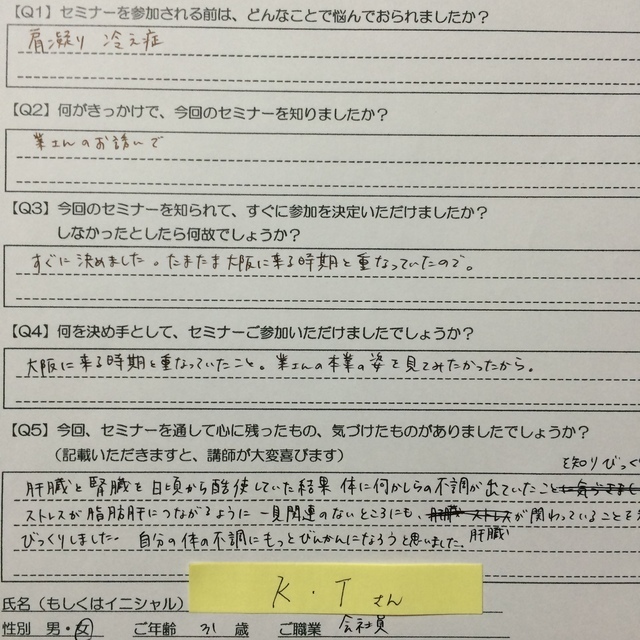 【Q1】セミナーを参加される前は、どんなことで悩んでおられましたか？
肩凝り 冷え症
【Q2】何がきっかけで、今回のセミナーを知りましたか？
さんのお誘いで
【Q3】今回のセミナーを知られて、すぐに参加を決定いただけましたか？
しなかったとしたら何故でしょうか？
すぐに決めました。たまたま大阪に来る時期と重なっていたので。
【Q4】何を決め手として、セミナーご参加いただけましたでしょうか？
大阪に来る時期と重なっていたこと。さんの本業の姿を見てみたかったから。
【Q5】今回、セミナーを通して心に残ったもの、気づけたものがありましたでしょうか？
（記載いただきますと、講師が大変喜びます）
を知りびっくり
肝臓と腎臓を日頃から酷使していた結果 体に何かしらの不調が出ていたこと
ストレスが脂肪肝につながるように 一見関連のないところにも、肝臓 ストレスが関わっていることを
びっくりしました。 自分の体の不調にもっとびんかんになろうと思いました。
肝臓
K・Tさん
氏名（もしくはイニシャル）
性別 男・女 ご年齢 31 歳 ご職業 会社員